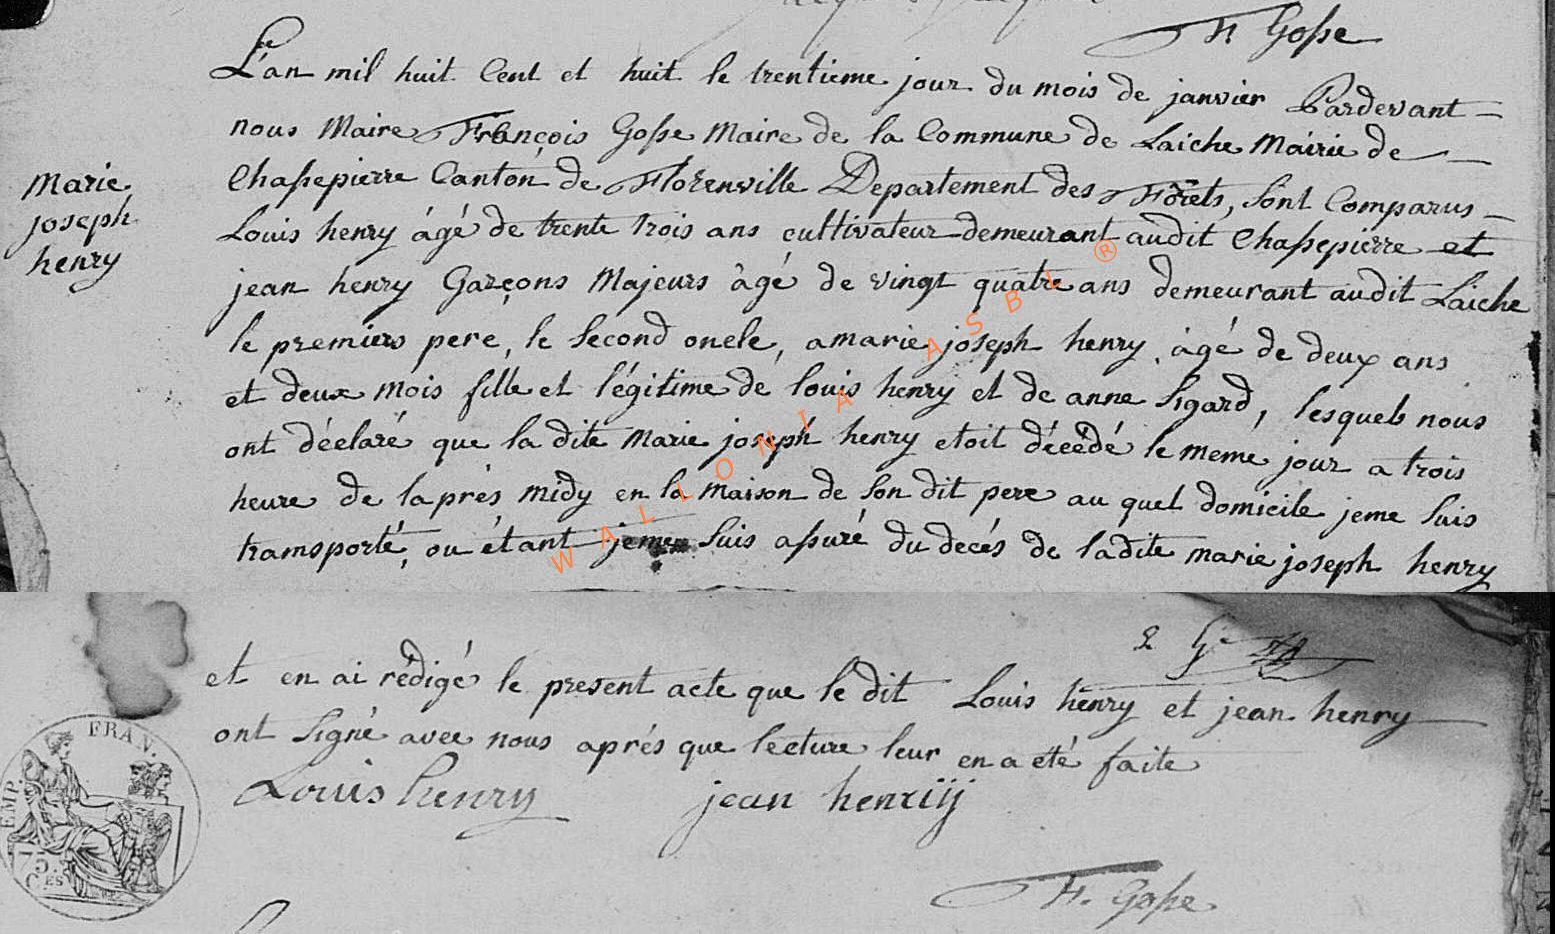 F. Gosse
L'an mil huit Cent et huit le trentieme jour du mois de janvier Pardevant
nous Maire François Gosse Maire de la Commune de Laiche Mairie de
Chassepierre Canton de Florenville Departement des Forêts, sont Comparus
Marie
joseph
henry
Louis henry ágé de trente trois ans cultivateur demeurant audit Chassepierre et
jean henry Garçons Majeurs âgé de vingt quatre ans demeurant audit Laiche
le premiers pere, le second oncle, a marie joseph henry, âgé de deux ans
et deux mois fille et légitime de louis henry et de anne Sigard, lesquels nous
ont déclaré que la dite Marie joseph henry etoit décédé le meme jour a trois
heure de laprés midy en la maison de son dit pere au quel domicile jeme suis
transporté, ou étant jeme suis assuré du decés de ladite marie joseph henry
WALLONIA ASBL ®
et en ai rédigé le present acte que le dit Louis henry et jean henry
ont signé avec nous aprés que lecture leur en a été faite
Louis henry jean henrÿ
F. Gosse
EMP. FRAN.
75.
CES